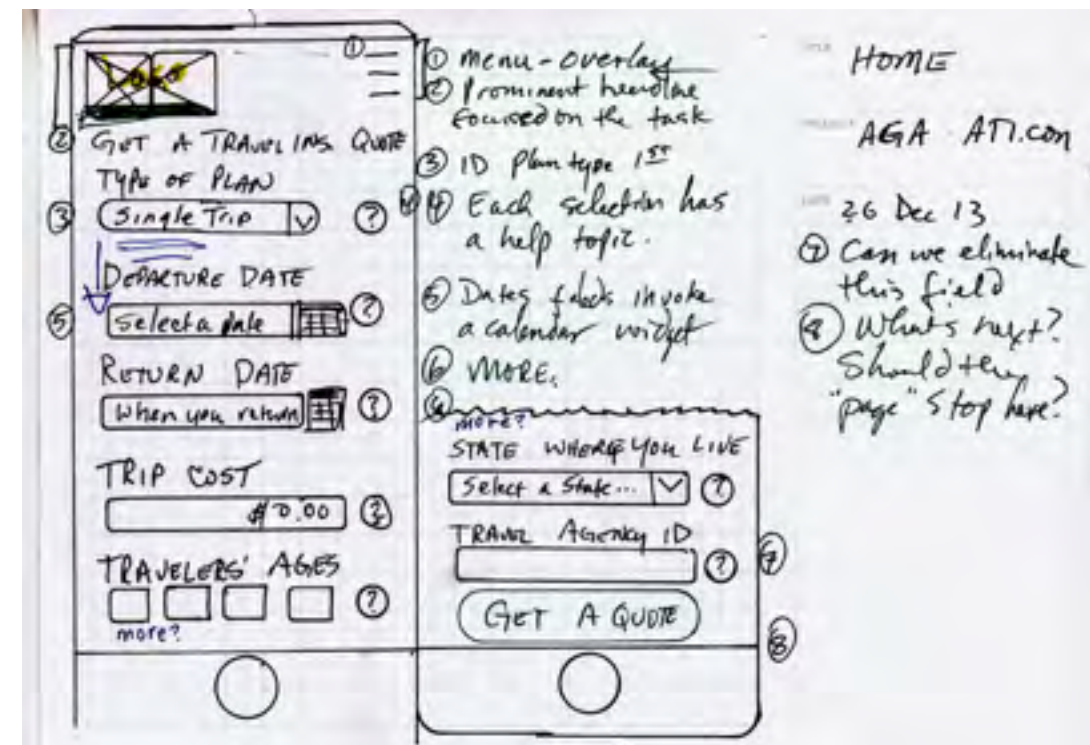 LOGO
①
② GET A TRAVEL INS. QUOTE
TYPE OF PLAN
③ Single Trip ?
DEPARTURE DATE
⑤ Select a Date ?
RETURN DATE
When you return ?
TRIP COST
$0.00 ?
TRAVELERS' AGES
?
more?
① Menu - overlay
② Prominent headline
focused on the task
③ ID Plan type 1st
④ Each selection has
a help topic.
⑤ Dates fields invoke
a calendar widget
⑥ MORE.
⑥
more?
STATE WHERE YOU LIVE
Select a State... ?
TRAVEL AGENCY ID
? ⑦
GET A QUOTE
⑧
HOME
AGA ATI.com
26 Dec 13
⑦ Can we eliminate
this field
⑧ What's next?
Should the
"page" stop here?